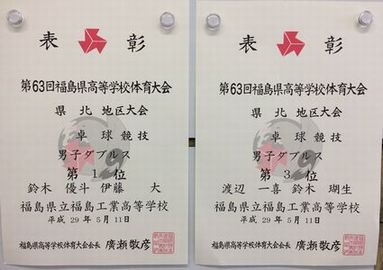 表 彰
第63回福島県高等学校体育大会
県 北 地区大会
卓 球 競 技
男子ダブルス
第 1 位
鈴木 優斗 伊藤 大
福島県立福島工業高等学校
平成 29 年 5 月 11 日
福島県高等学校体育大会会長 廣瀬敬彦
表 彰
第63回福島県高等学校体育大会
県 北 地区大会
卓 球 競 技
男子ダブルス
第 3 位
渡辺 一喜 鈴木 瑚生
福島県立福島工業高等学校
平成 29 年 5 月 11 日
福島県高等学校体育大会会長 廣瀬敬彦